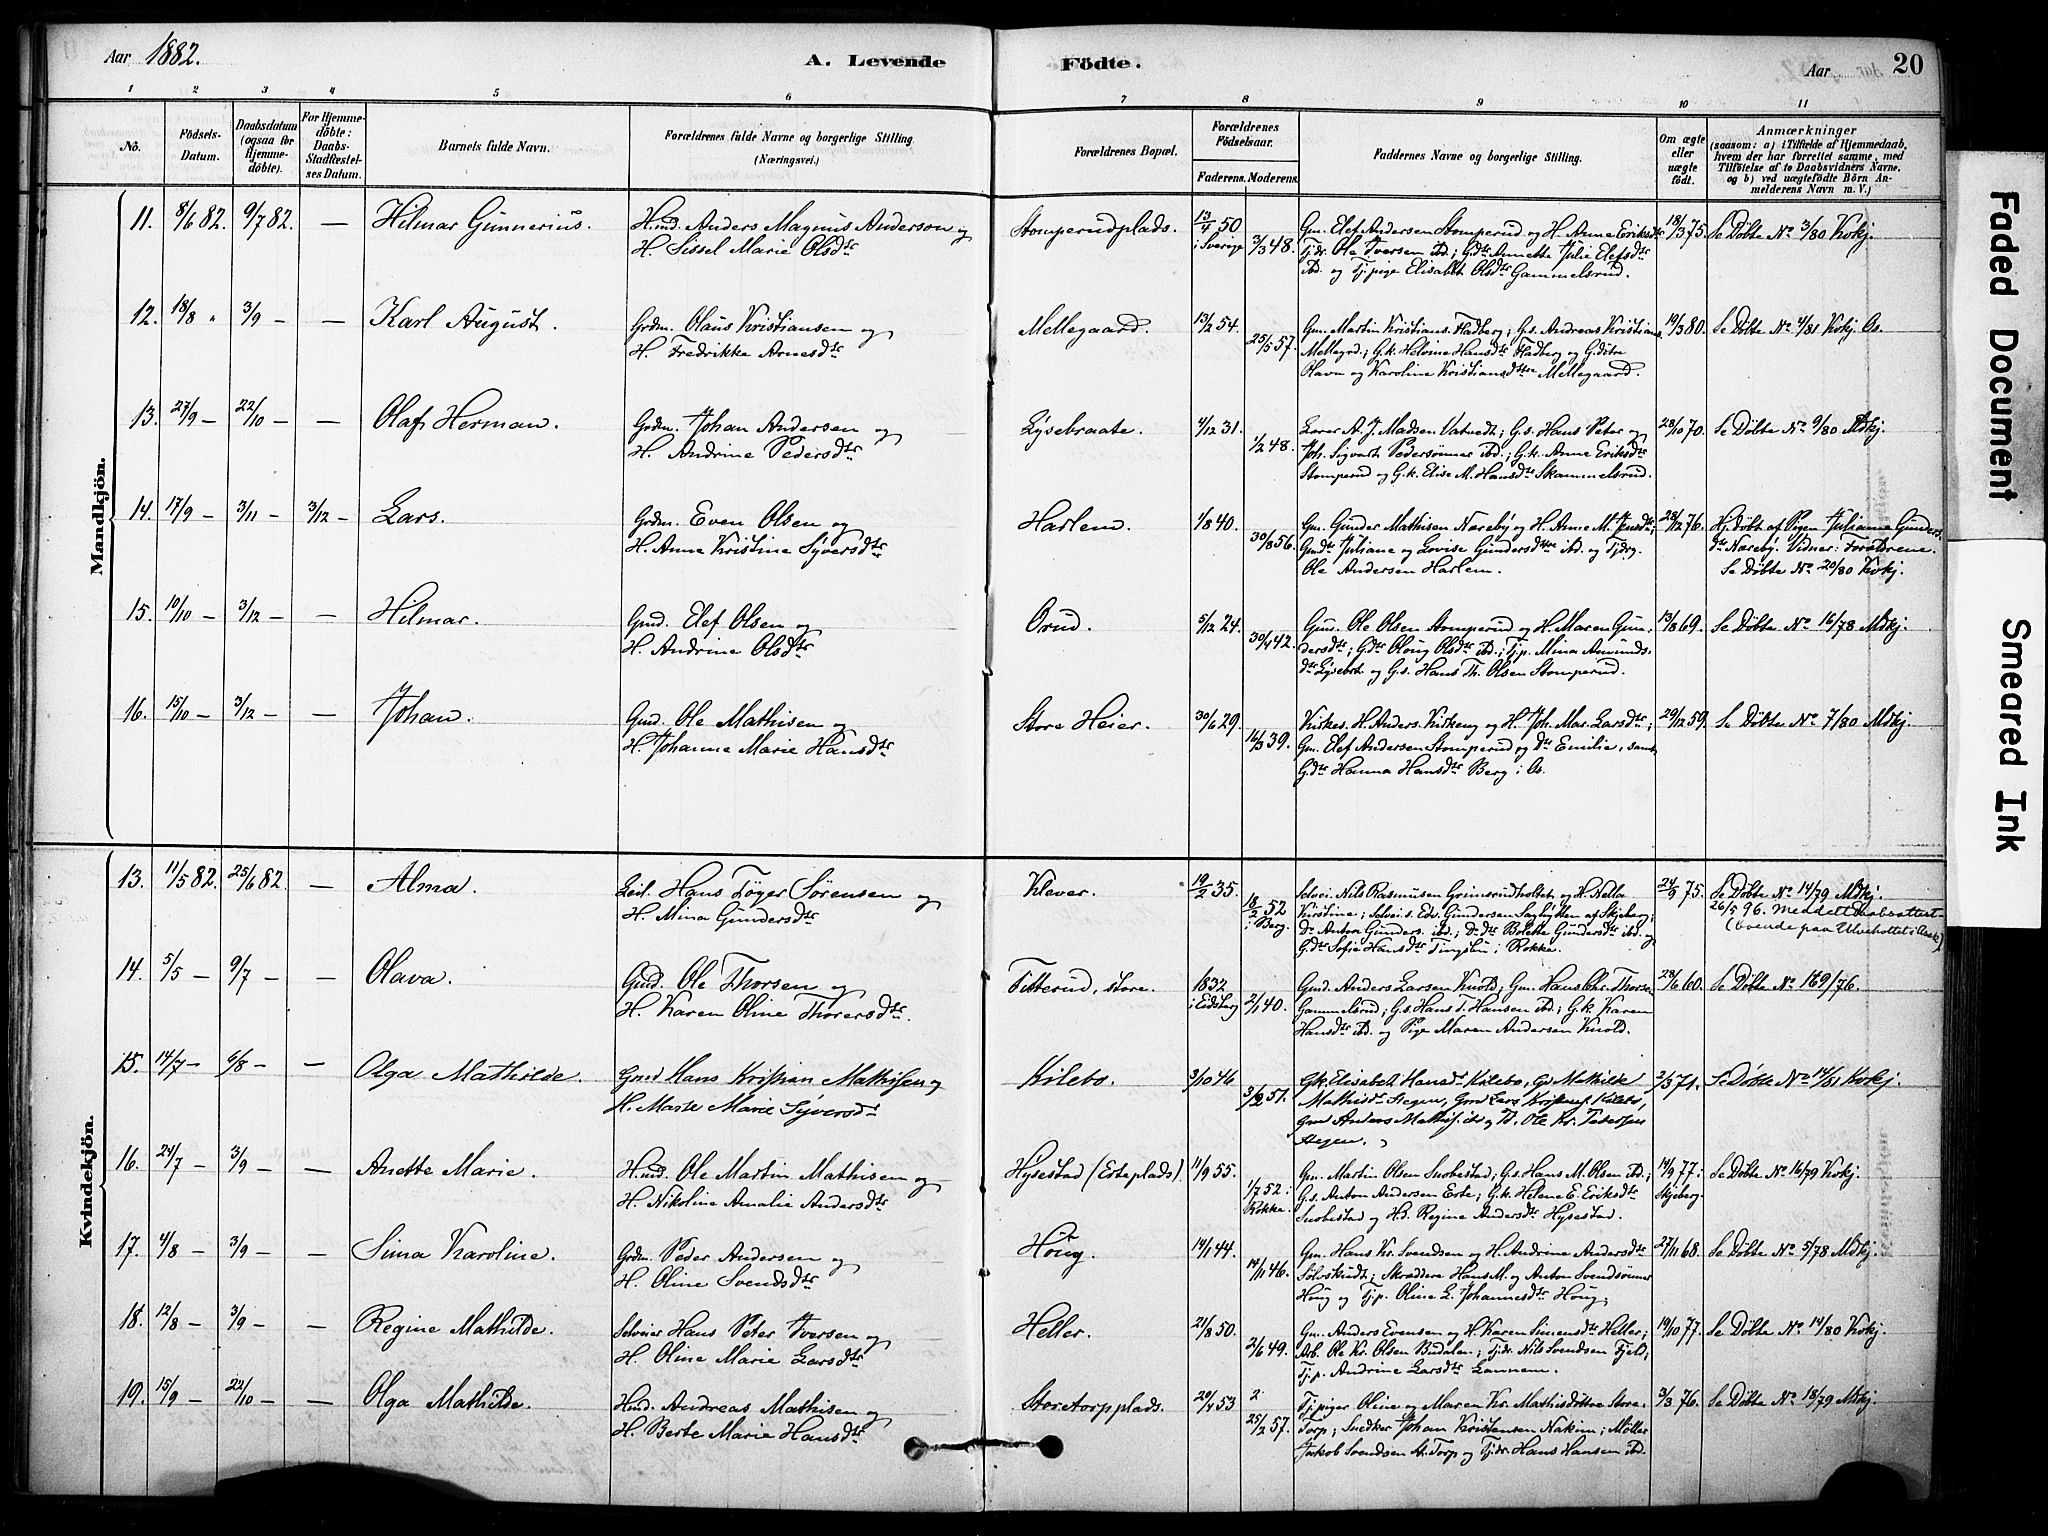 Aar 1882. A. Levende Födte. Aar 20
1 2 3 4 5 6 7 8 9 10 11
No.
Födsels-
Datum.
Daabsdatum
(ogsaa for
Hjemme-
döbte).
For Hjemme-
döbte:
Daabs-
Stadfæstel-
ses Datum.
Barnets fulde Navn.
Forældrenes fulde Navne og borgerlige Stilling.
(Næringsvei.)
Forældrenes Bopæl.
Forældrenes
Födselsaar.
Faderens. Moderens.
Faddernes Navne og borgerlige Stilling.
Om ægte
eller
uægte
födt.
Anmærkninger
(saasom: a) i Tilfælde af Hjemmedaab,
hvem der har forrettet samme, med
Tilföielse af to Daabsvidners Navne,
og b) ved uægtefödte Börn An-
melderens Navn m. V.)
Mandkjön.
11. 8/6 82. 9/7 82. — Hilmar Gunnerius.
Hmd. Anders Magnus Anderson og
H. Sissel Marie Olsdtr
Stomperudplads.
13/4 50 i Sverige
3/3 48.
Gm. Elef Andersen Stomperud og H. Anne Eriksdtr
Tjdr. Ole Iversen ibd.; Gdtr Annette Julie Elefsdtr
ibd. og Tj.pige Elisabet Olsdtr Gammelsrud.
18/3 75.
Se Døbte No 3/80 Kvkj.
12. 18/8 " 3/9 — — Karl August.
Grdm. Olaus Kristiansen og
H. Fredrikke Arnesdtr
Mellegaard.
13/2 54.
25/5 57.
Gm. Martin Kristians. Fladberg; G.s. Andreas Kristians.
Mellegrd.; G.k. Helvine Hansdtr Fladberg og G.døtre
Olava og Karoline Kristiansdtre Mellegaard.
19/3 80.
Se Døbte No 4/81 Kvkj. As.
13. 27/9 — 22/10 — — Olaf Herman.
Grdm. Johan Andersen og
H. Andrine Pedersdtr
Lysebraate.
4/12 31.
1/2 48.
Lærer A. J. Madsen Vatvedt; G.s. Hans Peter og
Joh. Sigvart Pedersønner ibd.; G.k. Anne Eriksdtr
Stomperud og G.k. Elise M. Hansdtr Skammelsrud.
28/10 70.
Se Døbte No 9/80 Mdkj.
14. 17/9 — 3/11 — 3/12 — Lars.
Grdm. Even Olsen og
H. Anne Kristine Syversdtr
Harlem.
1/8 40.
30/8 56.
Gm. Gunder Mathisen Næreby og H. Anne M. Jensdtr;
Gmdtr Juliane og Lovise Gundersdtre ibd. og Tjdrg.
Ole Andersen Harlem.
28/12 76.
Hj. Døbt af Pigen Juliane Gunders
dtr Næreby. Vidner: Forældrene.
Se Døbte No 20/80 Kvkj.
15. 10/10 — 3/12 — — Hilmar.
Gmd. Elef Olsen og
H. Andrine Olsdtr
Orud.
5/12 24.
30/4 42.
Gmd. Ole Olsen Stomperud og H. Maren Gun-
dersdtr; Gdtr Oloug Olsdtr ibd.; Tj.p. Mina Amunds-
dtr Lysebrt. og G.s. Hans Th. Olsen Stomperud.
13/8 69.
Se Døbte No 16/78 Mdkj.
16. 15/10 — 3/12 — — Johan.
Gmd. Ole Mathisen og
H. Johanne Marie Hansdtr
Store Heier.
30/6 29.
16/3 39.
Kirkes. H. Anders. Kirkeng og H. Joh. Mar. Larsdtr;
Gm. Elef Andersen Stomperud og dtr Emilie, samt
Gdtr Hanna Hansdtr Berg i As.
29/12 59.
Se Døbte No 7/80 Mdkj.
Kvindekjön.
13. 11/5 82. 25/6 82. — Alma.
Hans Töger Sörensen og
H. Mina Gundersdtr
Klever.
19/2 35.
18/2 52 i Berg.
Selvei. Nils Rasmusen Grimsrudholtet og H. Nelle
Kristine; Selvei.s. Edv. Gundersen Saghytten af Skjeberg;
Do Anton Gunders. ibd.; Do dtr Bolette Gundersdtr ibd. og
Gdtr Sofie Hansdtr i Rokke.
24/9 75.
Se Døbte No 14/79 Mdkj.
26/5 96. meddelt Daabsattest
14. 5/5 — 9/7 — — Olava.
Gmd. Ole Thorsen og
H. Karen Oline Thorersdtr.
Titterud, store.
1832 i Eidsberg
2/1 40.
Gmd. Anders Larsen Knold; Gm. Hans Chr. Thorsen
Gammelsrud; G.s. Hans T. Hansen ibd.; G.k. Karen
Hansdtr ibd. og Pige Maren Andersen Knold.
28/6 60.
Se Døbte No 169/76.
15. 14/7 — 6/8 — — Olga Mathilde.
Gmd Hans Kristian Mathisen og
H. Marte Marie Syversdtr
Kilebo.
3/10 46
3/2 51.
Gk. Elisabeth Hansdr Kilebo, Gd Mathilde
Mathisdr Hegen, Gmd Lars Kristians. Kilebo,
Gmd Anders Mathis. ibd og Th. Ole Kr. Pedersen
Hegen.
2/3 71.
Se Døbte No 14/81 Kvkj.
16. 24/7 — 3/9 — — Anette Marie.
Hmd. Ole Martin Mathisen og
H. Nikoline Amalie Andersdtr
Hysestad (Erteplads).
11/9 55.
1/7 52 i Rokke.
Gm. Martin Olsen Snobestad; G.s. Hans M. Olsen ibd.
G.s. Anton Andersen Erte; G.k. Helene E. Eriksdtr
Snobestad og H.k. Regine Andersdtr Hysestad.
14/9 77 i Skjeberg.
Se Døbte No 16/79 Kvkj.
17. 4/8 — 3/9 — — Sina Karoline.
Grdm. Peder Andersen og
H. Oline Svendsdtr
Houg.
14/1 44.
14/11 46.
Gm. Hans Kr. Svendsen og H. Andrine Andersdtr
Sölvskudt; Skræddere Hans M. og Anton Svendsønner
Houg og Tj.p. Oline L. Johannesdtr Houg.
27/11 68.
Se Døbte No 5/78 Mdkj.
18. 12/8 — 3/9 — — Regine Mathilde.
Selveier Hans Peter Iversen og
H. Oline Marie Larsdtr
Heller.
21/8 50.
2/6 49.
Gm. Anders Evensen og H. Karen Simensdtr Heller;
Arb. Ole Kr. Olsen Budalen; Tjdr. Nils Svendsen Fjeld;
Tj.p. Andrine Larsdtr Lannem.
19/10 77.
Se Døbte No 14/80 Kvkj.
19. 15/9 — 22/10 — — Olga Mathilde.
Hmd. Andreas Mathisen og
H. Berte Marie Hansdtr
Storetorpplads.
20/4 53
25/2 57.
Tj.piger Oline og Maren Kr. Mathisdøtre Store-
Torp; Snedker Johan Kristensen Nakim; Møller
Jakob Svendsen St. Torp og Tjdr. Hans Hansen ibd.
3/3 76.
Se Døbte No 18/79 Mdkj.
Faded Document
Smeared Ink